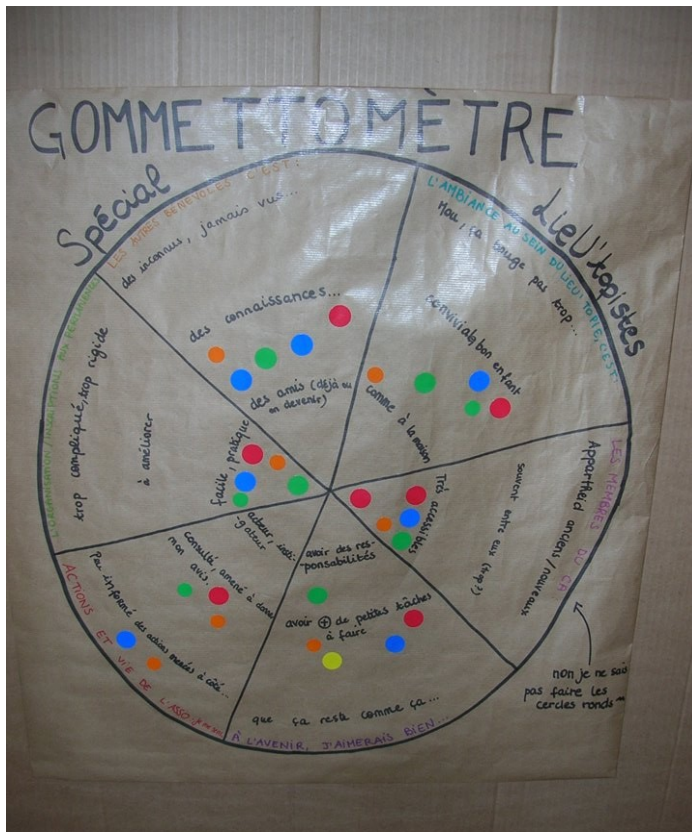 GOMMETTOMÈTRE
Spécial
Lieu'topistes
LES AUTRES BÉNÉVOLES C'EST :
des inconnus, jamais vus...
des connaissances...
des amis (déjà ou
en devenir)
L'AMBIANCE AU SEIN DU LIEU'TOPIE, C'EST
Mou, ça bouge pas trop...
convivial, bon enfant
comme à la maison
LES MEMBRES DU CA
Appartheid anciens/nouveaux
souvent entre eux (trop?)
Très accessibles
non je ne sais
pas faire les
cercles ronds
À L'AVENIR, J'AIMERAIS BIEN...
que ça reste comme ça...
avoir + de petites tâches
à faire
avoir des res-
-ponsabilités
ACTIONS ET VIE DE L'ASSO
Pas informé des actions menées à côté...
consulté, amené à donner
mon avis.
acteur, insti-
-gateur
L'ORGANISATION/INSCRIPTIONS AUX PERMANENCES
trop compliqué, trop rigide
à améliorer
facile, pratique